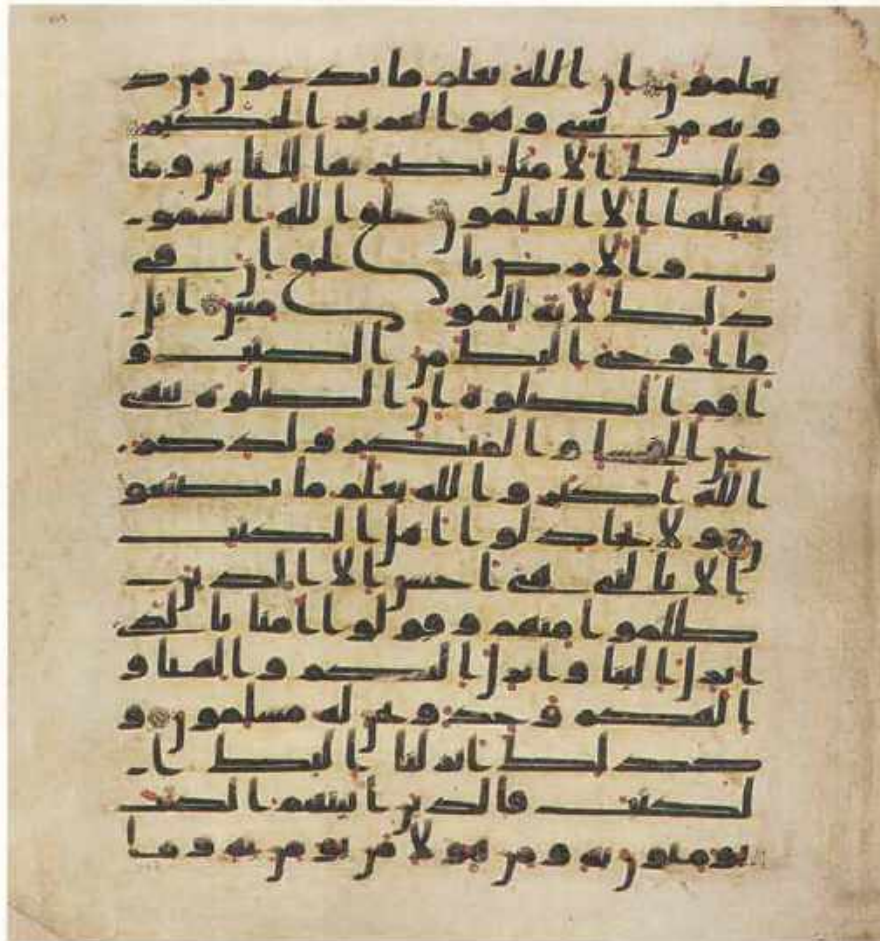 يعلمون ان الله يعلم ما يدعون من د
ونه من شى وهو العزيز الحكيم
وتلك الامثل نضربها للناس وما
يعقلها الا العلمون خلق الله السمو
ت والارض بالحق ان فى
ذلك لاية للمومنين اتل
ما اوحى اليك من الكتب و
اقم الصلوة ان الصلوة تنهى
عن الفحشا والمنكر ولذكر
الله اكبر والله يعلم ما تصنعو
ن ولا تجدلوا اهل الكتب
الا بالتى هى احسن الا الذين
ظلموا منهم وقولوا امنا بالذى
انزل الينا وانزل اليكم والهنا و
الهكم وحد ونحن له مسلمون و
كذلك انزلنا اليك ا
لكتب فالذين اتينهم الكتب
يومنون به ومن هولا من يومن به وما